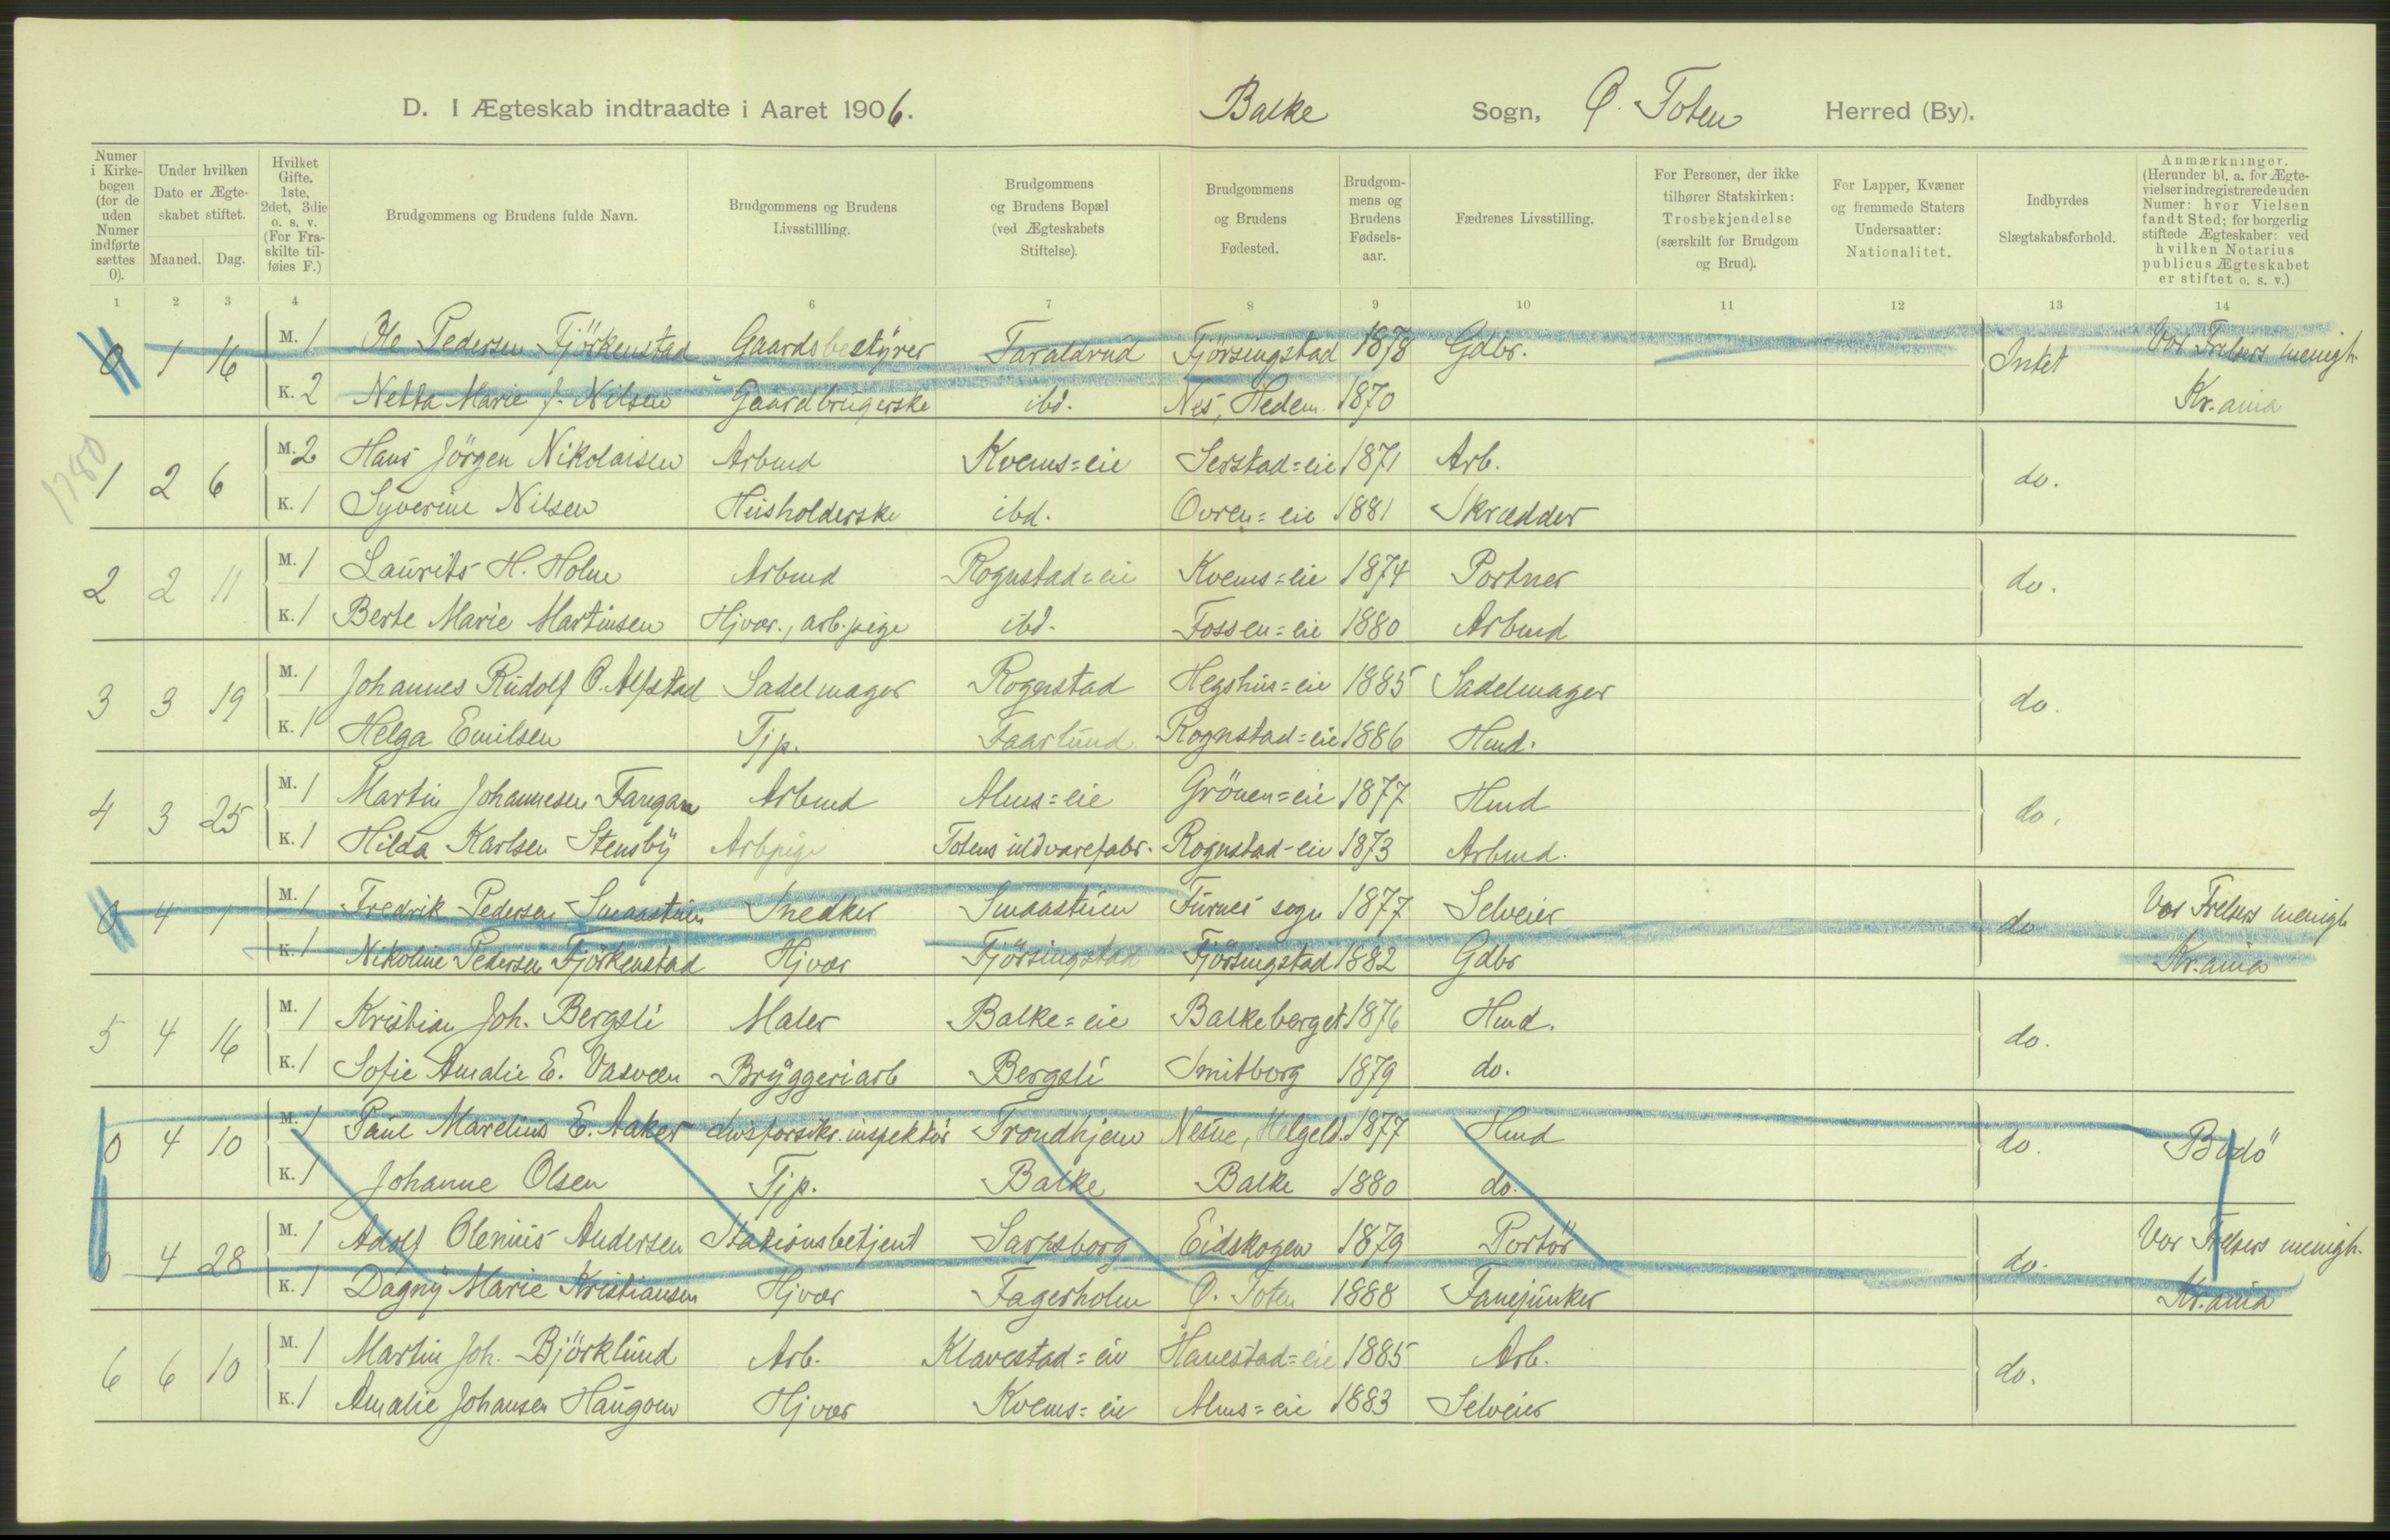 D. I Ægteskab indtraadte i Aaret 1906. Balke Sogn, Ø. Toten Herred (By).
Numer i Kirkebogen (for de uden Numer indførte sættes 0).
Under hvilken Dato er Ægteskabet stiftet.
Maaned. Dag.
Hvilket Gifte. 1ste, 2det, 3die o. s. v. (For Fraskilte tilføies F.)
Brudgommens og Brudens fulde Navn.
Brudgommens og Brudens Livsstillling.
Brudgommens og Brudens Bopæl (ved Ægteskabets Stiftelse).
Brudgommens og Brudens Fødested.
Brudgommens og Brudens Fødselsaar.
Fædrenes Livsstilling.
For Personer, der ikke tilhører Statskirken: Trosbekjendelse (særskilt for Brudgom og Brud).
For Lapper, Kvæner og fremmede Staters Undersaatter: Nationalitet.
Indbyrdes Slægtskabsforhold.
Anmærkninger. (Herunder bl. a. for Ægtevielser indregistrerede uden Numer: hvor Vielsen fandt Sted; for borgerlig stiftede Ægteskaber: ved hvilken Notarius publicus Ægteskabet er stiftet o. s. v.)
1 2 3 4 6 7 8 9 10 11 12 13 14
0 1 16 M. 1 Ole Pedersen Fjörkenstad Gaardsbestyrer Faraldrud Fjörsingstad 1878 Gdbr. Intet Vor Frelsers menigh.
K. 2 Netta Marie J. Nilsen Gaardbrugerske ibd. Nes, Hedem. 1870 Kr.ania
1780
1 2 6 M. 2 Hans Jörgen Nikolaisen Arbmd Kvems=eie Serstad=eie 1871 Arb. do.
K. 1 Syverine Nilsen Husholderske ibd. Ovren=eie 1881 Skrædder
2 2 11 M. 1 Laurits H. Holm Arbmd Rognstad=eie Kvems=eie 1874 Portner do.
K. 1 Berte Marie Martinsen Hjvær., arb.pige ibd. Fossen=eie 1880 Arbmd
3 3 19 M. 1 Johannes Rudolf O. Alfstad Sadelmager Rognstad Hegshus=eie 1885 Sadelmager do.
K. 1 Helga Emilsen Tjp. Faarlund Rognstad=eie 1886 Hmd.
4 3 25 M. 1 Martin Johannesen Fangan Arbmd Alms=eie Grönen=eie 1877 Hmd do.
K. 1 Hilda Karlsen Stensby Arbpige Totens uldvarefabr. Rognstad-eie 1873 Arbmd.
0 4 1 M. 1 Fredrik Pedersen Smaastuen Snedker Smaastuen Furnes sogn 1877 Selveier do Vor Frelsers menigh
K. 1 Nikoline Pedersen Fjörkenstad Hjvær Fjörsingstad Fjörsingstad 1882 Gdbr Kr.ania
5 4 16 M. 1 Kristian Joh. Bergsli Maler Balke=eie Balkeberget 1876 Hmd. do.
K. 1 Sofie Amalie E. Vasveen Bryggeriarb Bergsli Smitborg 1879 do.
0 4 10 M. 1 Paul Marelius E. Aaker Livsforsikr. inspektör Trondhjem Nesne, Helgeld. 1877 Hmd do. Bodö
K. 1 Johanne Olsen Tjp. Balke Balke 1880 do.
0 4 28 M. 1 Adolf Olenius Andersen Stationsbetjent Sarpsborg Eidskogen 1879 Portör do. Vor Frelsers menigh.
K. 1 Dagny Marie Kristiansen Hjvær Fagerholm Ø. Toten 1888 Fanejunker Kr.ania
6 6 10 M. 1 Martin Joh. Björklund Arb. Klavestad=eie Hanestad=eie 1885 Arb. do.
K. 1 Amalie Johansen Haugom Hjvær Kvems=eie Alms=eie 1883 Selveier